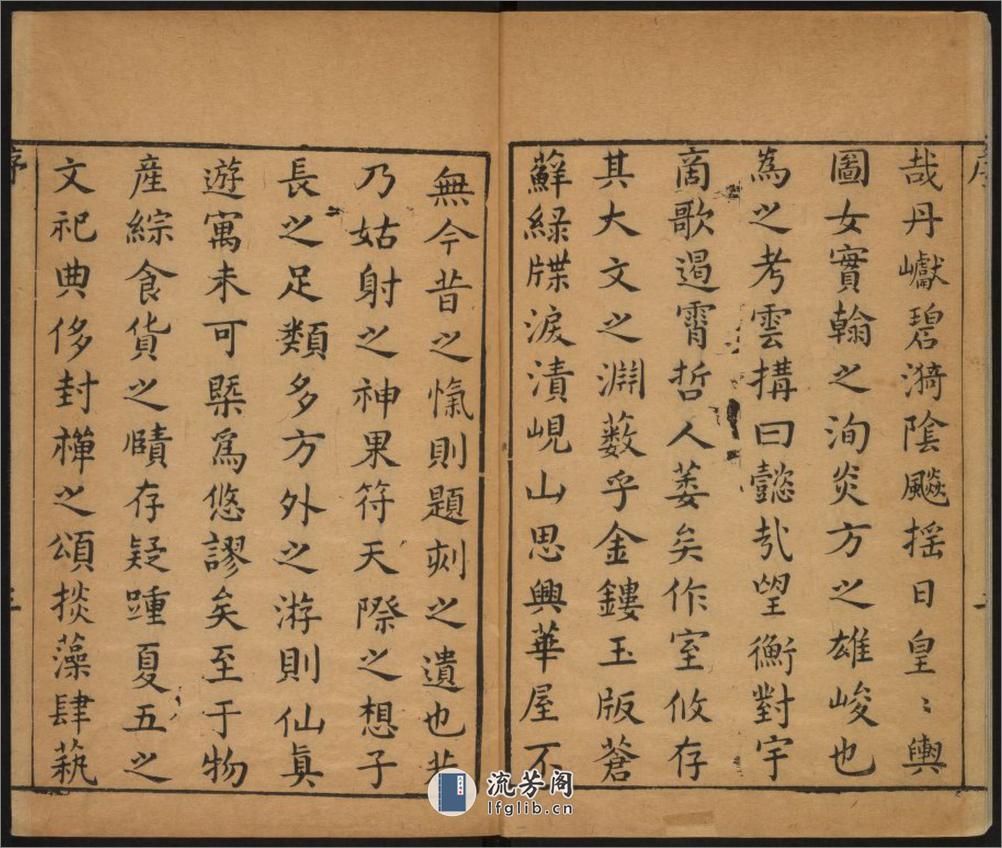 哉丹巘碧漪陰飈搖日皇〻輿
圖女實翰之洵炎方之雄峻也
為之考雲搆曰懿㢤望衡對宇
啇歌遏霄哲人萎矣作室攸存
其大文之淵藪乎金鏤玉版蒼
蘚綠牒淚漬峴山思興華屋不
無今昔之愾則題刻之遺也
乃姑射之神果符天際之想子
長之足類多方外之游則仙眞
遊寓未可槩爲悠謬矣至于物
産綜食貨之賾存疑踵夏五之
文祀典侈封樿之頌掞藻肆蓺
序
流芳阁
lfglib.cn